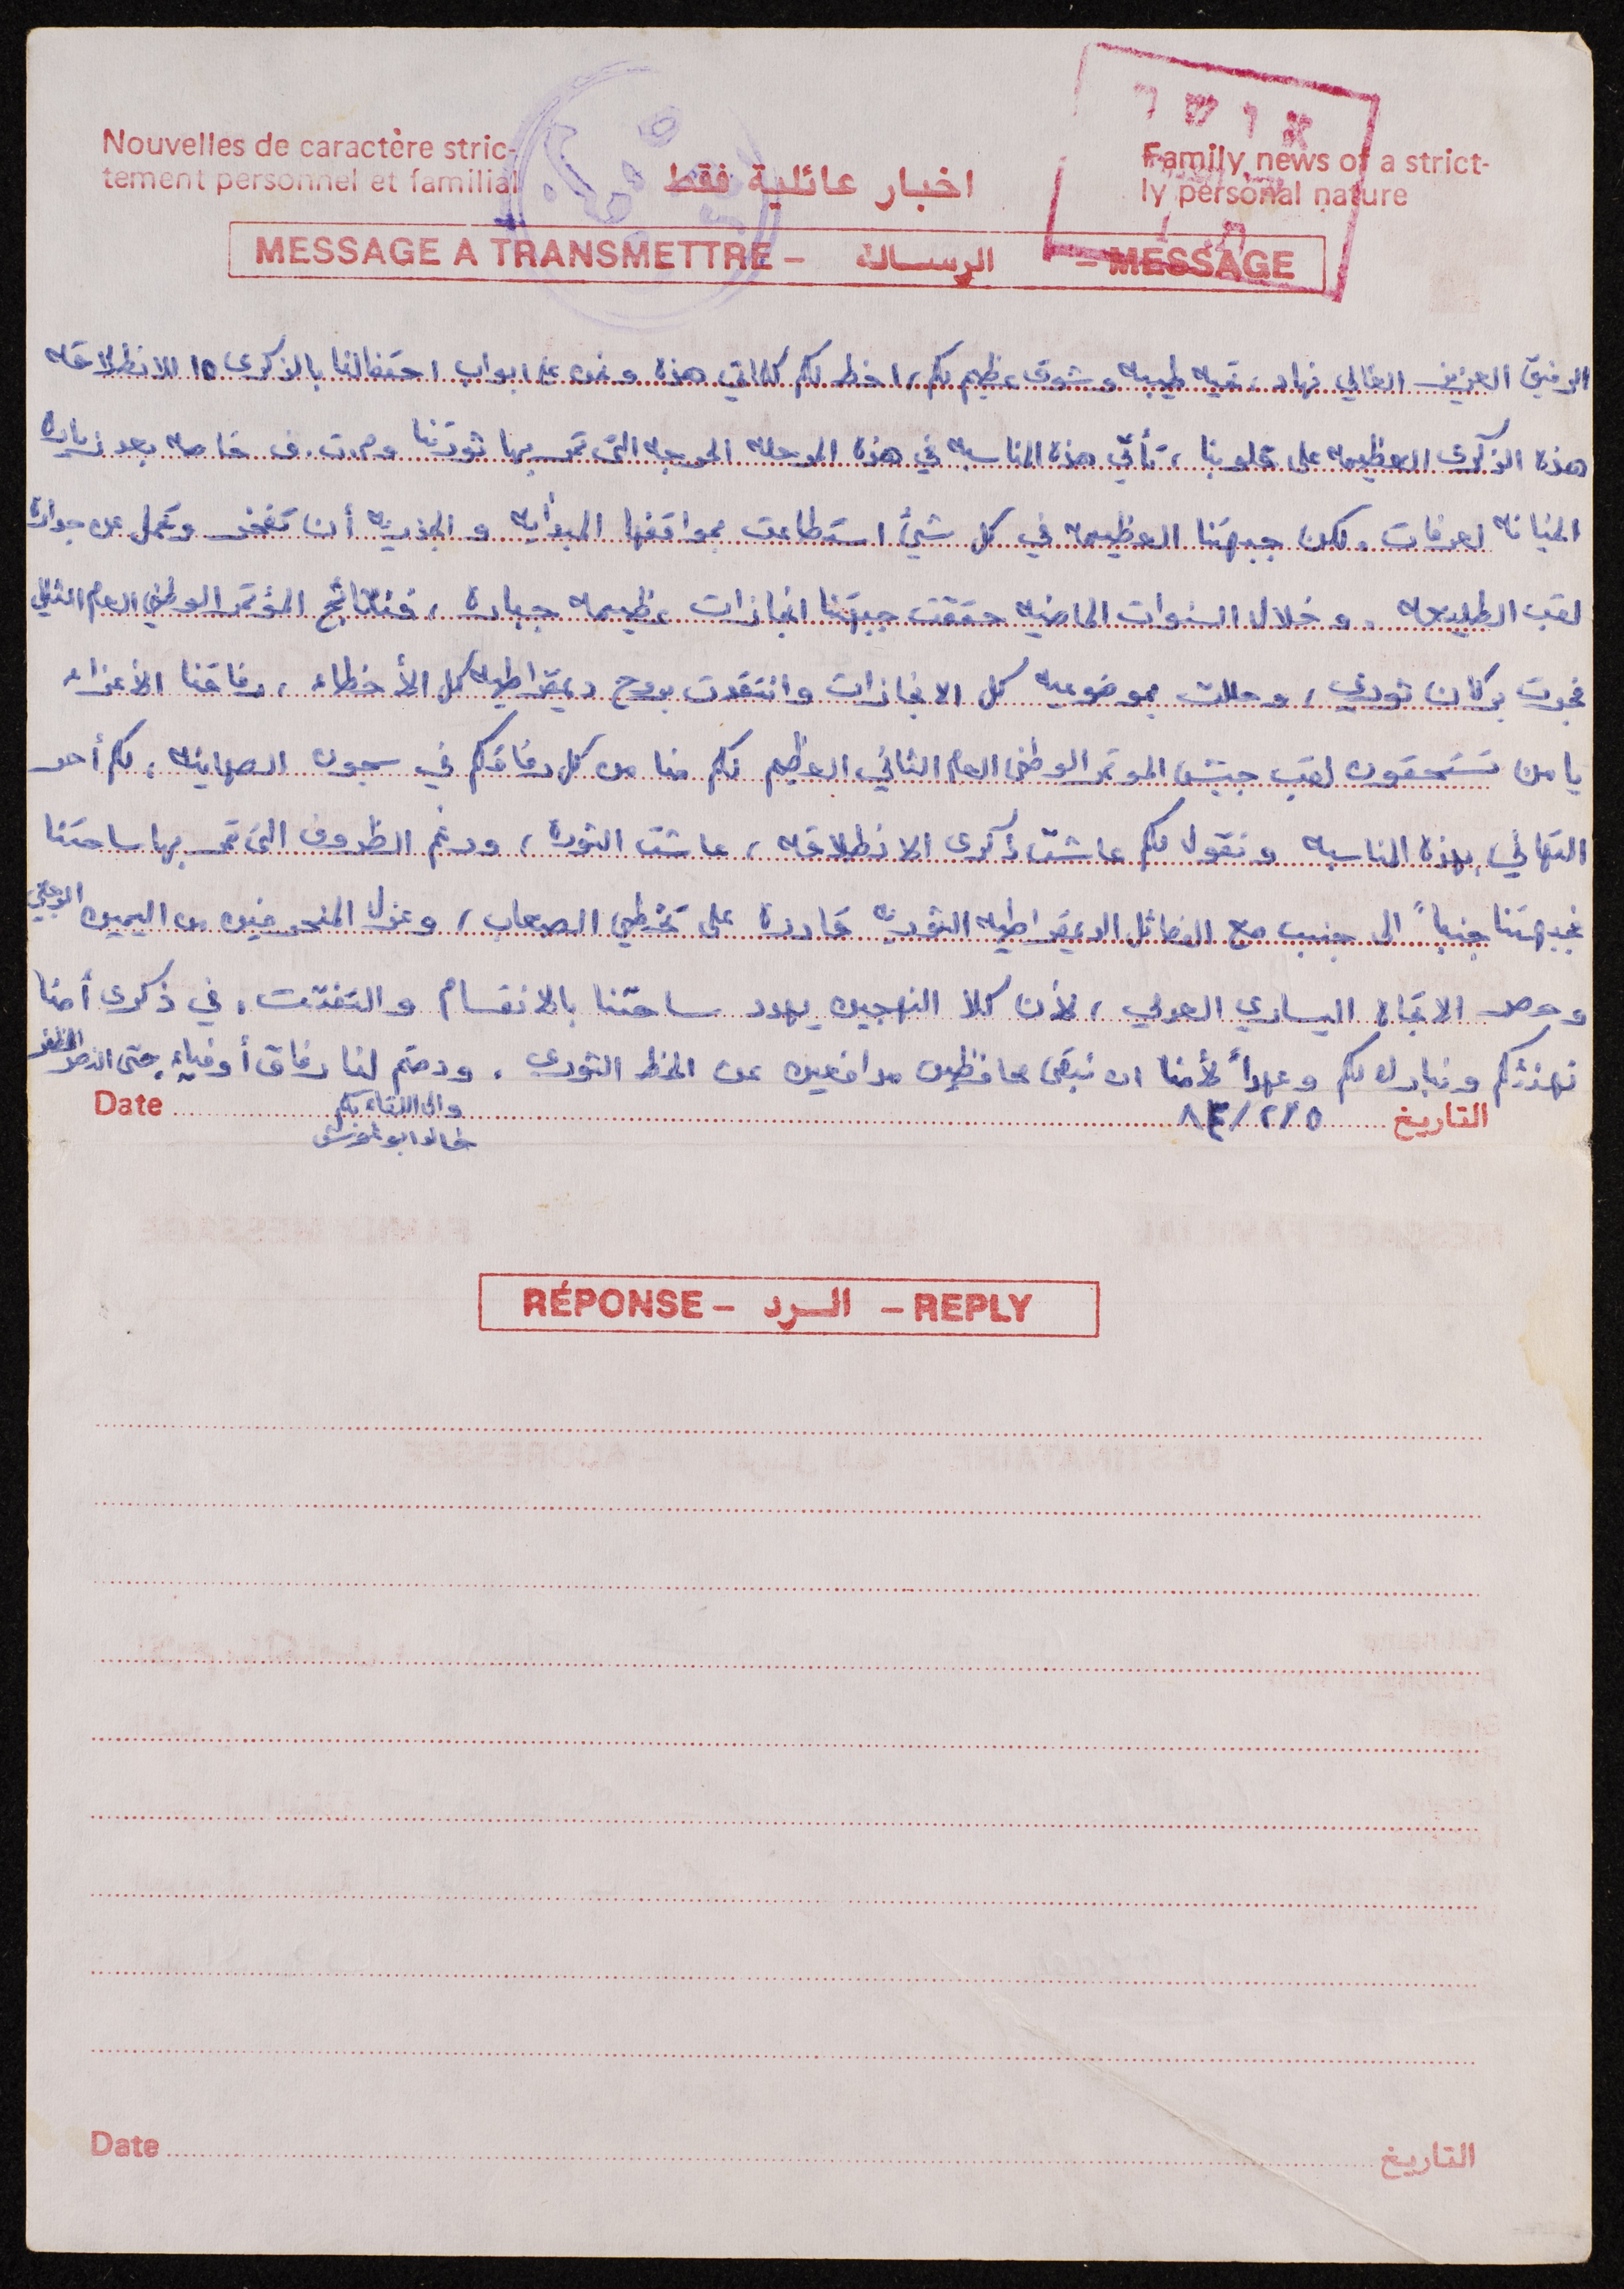 Nouvelles de caractère stric-
tement personnel et familial
اخبار عائلية فقط
Family news of a strict-
ly personal nature
אושר
MESSAGE A TRANSMETTRE - الرسالة - MESSAGE
الرفيق العزيز الغالي نهاد، تحيه طيبه وشوق عظيم لكم، اخط لكم كلماتي هذه ونحن على ابواب احتفالنا بالذكرى ١٥ للانطلاقه
هذه الذكرى العظيمه على قلوبنا، تأتي هذه المناسبه في هذه المرحله الحرجه التي تمر بها ثورتنا وم.ت.ف خاصه بعد زياره
الخيانه لعرفات. ولكن جبهتنا العظيمه في كل شيئ استطاعت بمواقفها المبدأيه والجذريه أن تفخر وتحمل عن جداره
لقب الطليعه. وخلال السنوات الماضيه حققت جبهتنا انجازات عظيمه جباره، فنتائج المؤتمر الوطني العام الثاني
فجرت بركان ثوري، وحللت بموضوعيه كل الانجازات وانتقدت بروح ديمقراطيه كل الأخطاء، رفاقنا الأعزاء
يا من تستحقون لقب جيش الموتمر الوطني العام الثاني العظيم لكم منا من كل رفاقكم في سجون الصهاينه، لكم أحر
التهاني بهذه المناسبه ونقول لكم عاشت ذكرى الانطلاقه، عاشت الثوره، ورغم الظروف التي تمر بها ساحتنا
فجبهتنا جنباً الى جنب مع الفصائل الديمقراطيه الثوريه قادرة على تخطي الصعاب، وعزل المنحرفين من اليمين الرجعي
وحصر الاتجاه اليساري العدمي، لأن كلا النهجين يهدد ساحتنا بالانقسام والتفتت. في ذكرى أمنا
نهنئكم ونبارك لكم وعهداً لأمنا ان نبقى محافظين مدافعين عن الخط الثوري. ودمتم لنا رفاق أوفياء، حتى النصر المظفر
والى اللقاء بكم
Date التاريخ ٨٣/٢/٥
خالد ابو
RÉPONSE - الرد - REPLY
Date التاريخ